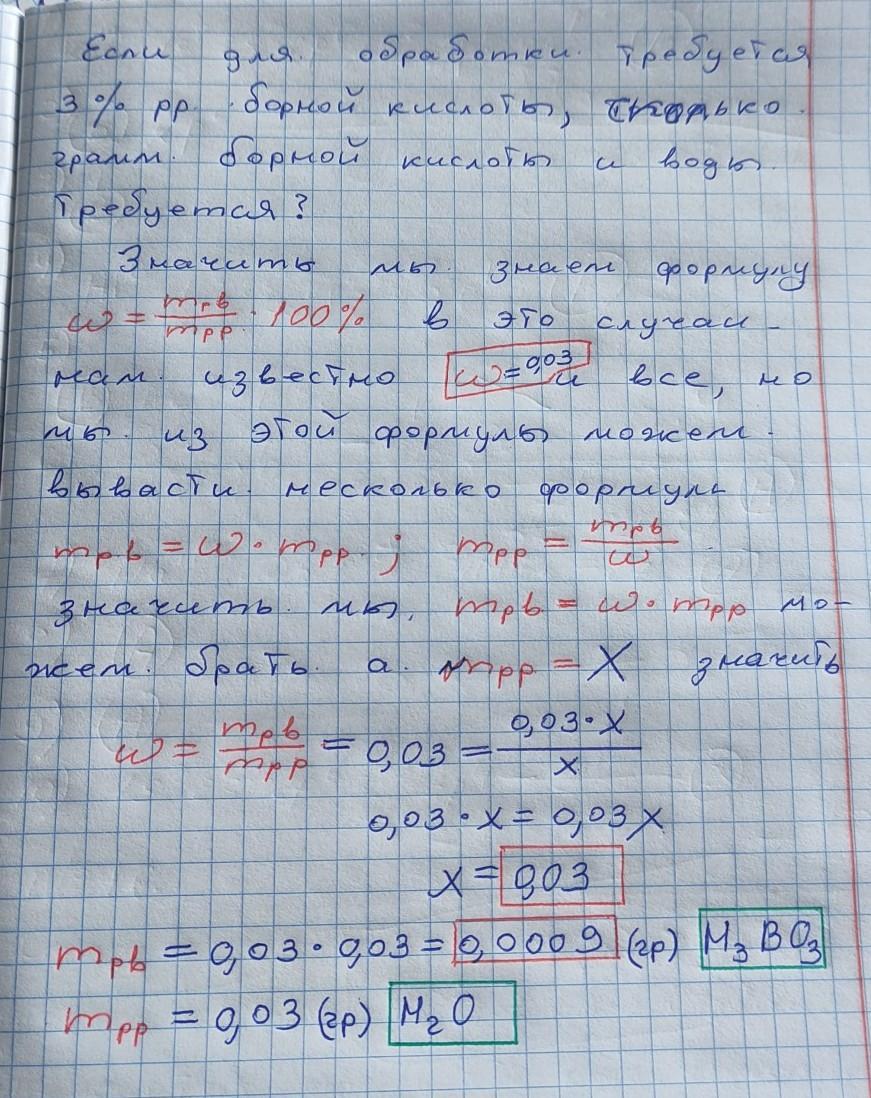 Если для обработки требуется
3% рр. борной кислоты, сколько
грамм борной кислоты и воды
требуется?
Значить мы знаем формулу
ω = mрв/mрр · 100% в это случаи
нам известно ω = 0,03 и все, но
мы из этой формулы можем
вывасти несколько формуль
mрв = ω · mрр ; mрр = mрв/ω
значить мы, mрв = ω · mрр мо-
жем брать а mрр = X значить
ω = mрв/mрр = 0,03 = 0,03·x/x
0,03 · x = 0,03x
x = 0,03
mрв = 0,03 · 0,03 = 0,0009 (гр) H₃BO₃
mрр = 0,03 (гр) H₂O